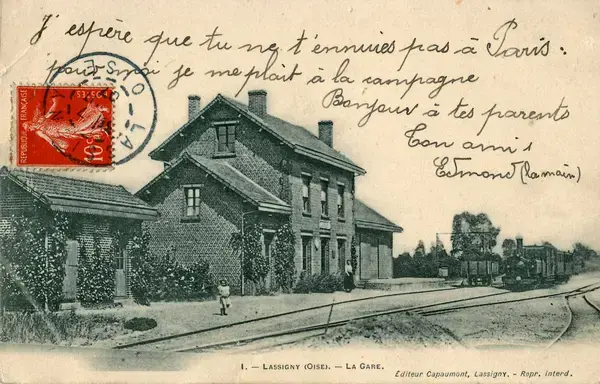 J'espère que tu ne t'ennuies pas à Paris.
pour moi je me plait à la campagne
Bonjour à tes parents
Ton ami
Edmond (la main)
RÉPUBLIQUE FRANÇAISE
POSTES
10c
OISE
LA
1. — LASSIGNY (OISE). — LA GARE.
Éditeur Capaumont, Lassigny. - Repr. interd.